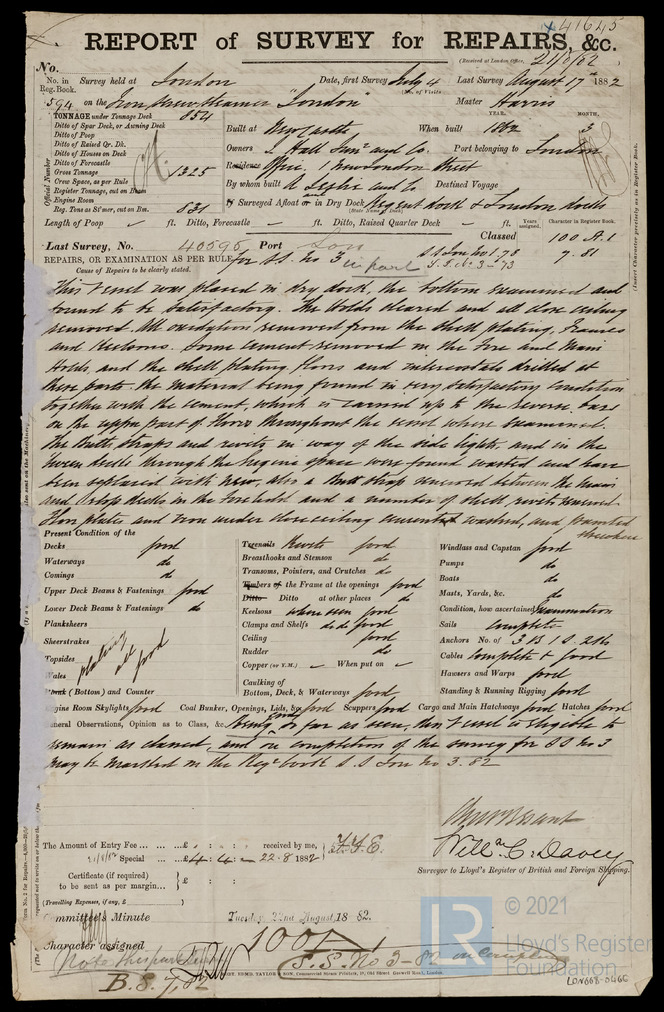 41645
REPORT of SURVEY for REPAIRS, &c.
(Received at London Office, 21/8/82
No.
No. in Reg. Book. Survey held at London Date, first Survey July 4 Last Survey August 17th 1882
(No. of Visits
594 on the Iron Screw Steamer "London" Master Harris
TONNAGE under Tonnage Deck 854
Ditto of Spar Deck, or Awning Deck
Ditto of Poop
Ditto of Raised Qr. Dk.
Ditto of Houses on Deck
Ditto of Forecastle
Gross Tonnage 1325
Crew Space, as per Rule
Register Tonnage, out on Beam
Engine Room
Reg. Tons as St'mer, cut on Bm. 831
Official Number
YEAR. MONTH.
Built at Newcastle When built 1862 3
Owners J. Hall Junr and Co. Port belonging to London
Residence Office, 1 New London Street
By whom built A Leslie and Co Destined Voyage
If Surveyed Afloat or in Dry Dock Regent dock & London docks
(State Name of Dock.)
Length of Poop ft. Ditto, Forecastle ft. Ditto, Raised Quarter Deck ft. Years assigned. Character in Register Book.
(Insert Character precisely as in Register Book.
Last Survey, No. 40596 Port Lon Classed 100 A.1
REPAIRS, OR EXAMINATION AS PER RULE for S.S. No 3 in part S.S. Lon No 1.78 7.81
Cause of Repairs to be clearly stated.
This vessel was placed in dry dock, the bottom examined and
found to be satisfactory. The Holds cleared and all close ceiling
removed. All oxidation removed from the shell plating, Frames
and Keelsons. Some cement removed in the Fore and Main
Holds, and the shell plating, floors and intercostals drilled at
these parts the material being found in very satisfactory condition
together with the cement, which is carried up to the reverse bars
on the upper part of floors throughout the vessel where examined.
The Butts, straps and rivets in way of the side lights, and in the
tween decks through the Engine space were found wasted and have
been replaced with new, also a Butt strap renewed between the Main
and Orlop decks in the Forehold and a number of shell rivets renewed
Floor plates and iron under close ceiling cement washed, and painted
elsewhere
Present Condition of the
Decks good
Waterways do
Comings do
Upper Deck Beams & Fastenings good
Lower Deck Beams & Fastenings do
Planksheers
Sheerstrakes
Topsides
Wales
plating all good
Plank (Bottom) and Counter
Treenails Rivets good
Breasthooks and Stemson do
Transoms, Pointers, and Crutches do
Timbers of the Frame at the openings good
Ditto Ditto at other places do
Keelsons where seen good
Clamps and Shelfs do do good
Ceiling good
Rudder do
Copper (or Y.M.) When put on
Caulking of Bottom, Deck, & Waterways good
Windlass and Capstan good
Pumps do
Boats do
Masts, Yards, &c. do
Condition, how ascertained Examination
Sails Complete
Anchors No. of 3 B 1 S. 2 Kk
Cables Complete & good
Hawsers and Warps good
Standing & Running Rigging good
Engine Room Skylights good Coal Bunker, Openings, Lids, &c. good Scuppers good Cargo and Main Hatchways good Hatches good
General Observations, Opinion as to Class, &c. being good so far as seen, this vessel is eligible to
remain as classed, and on completion of the survey for SS No 3
may be marked in the Regr book S.S Lon No 3.82
The Amount of Entry Fee £ : : received by me,
21/8/82 Special £ 4 : 4 : 22.8 1882
Certificate (if required) to be sent as per margin £ : :
(Travelling Expenses, if any, £ )
Willm C. Davey
Surveyor to Lloyd's Register of British and Foreign Shipping.
Committee's Minute Tuesday, 22nd August, 1882.
Character assigned 100A
S.S. No 3-82 on Completion
B.S. 7,82
LR © 2021
Lloyd's Register
Foundation
LON668-0466